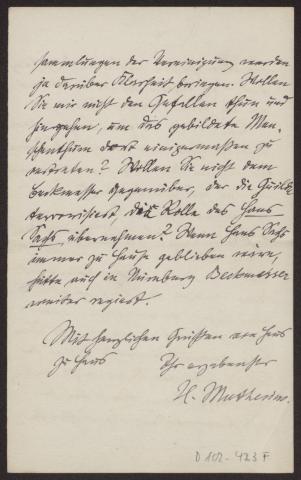 sammlungen der Vereinigung werden
ja darüber Klarheit bringen. Wollen
Sie mir nicht den Gefallen thun und
hingehen, um das gebildete Men-
schenthum dort einigermaßen zu
vertreten? Wollen Sie nicht dem
Beckmesser gegenüber, der die Guilde
terrorisiert, die Rolle des Hans
Sachs übernehmen? Wenn Hans Sachs
immer zu Hause geblieben wäre,
hätte auch in Nürnberg Beckmesser
weiter regiert.
Mit herzlichen Grüssen von Haus
zu Haus
Ihr ergebenster
H. Muthesius.
D 102-423 F